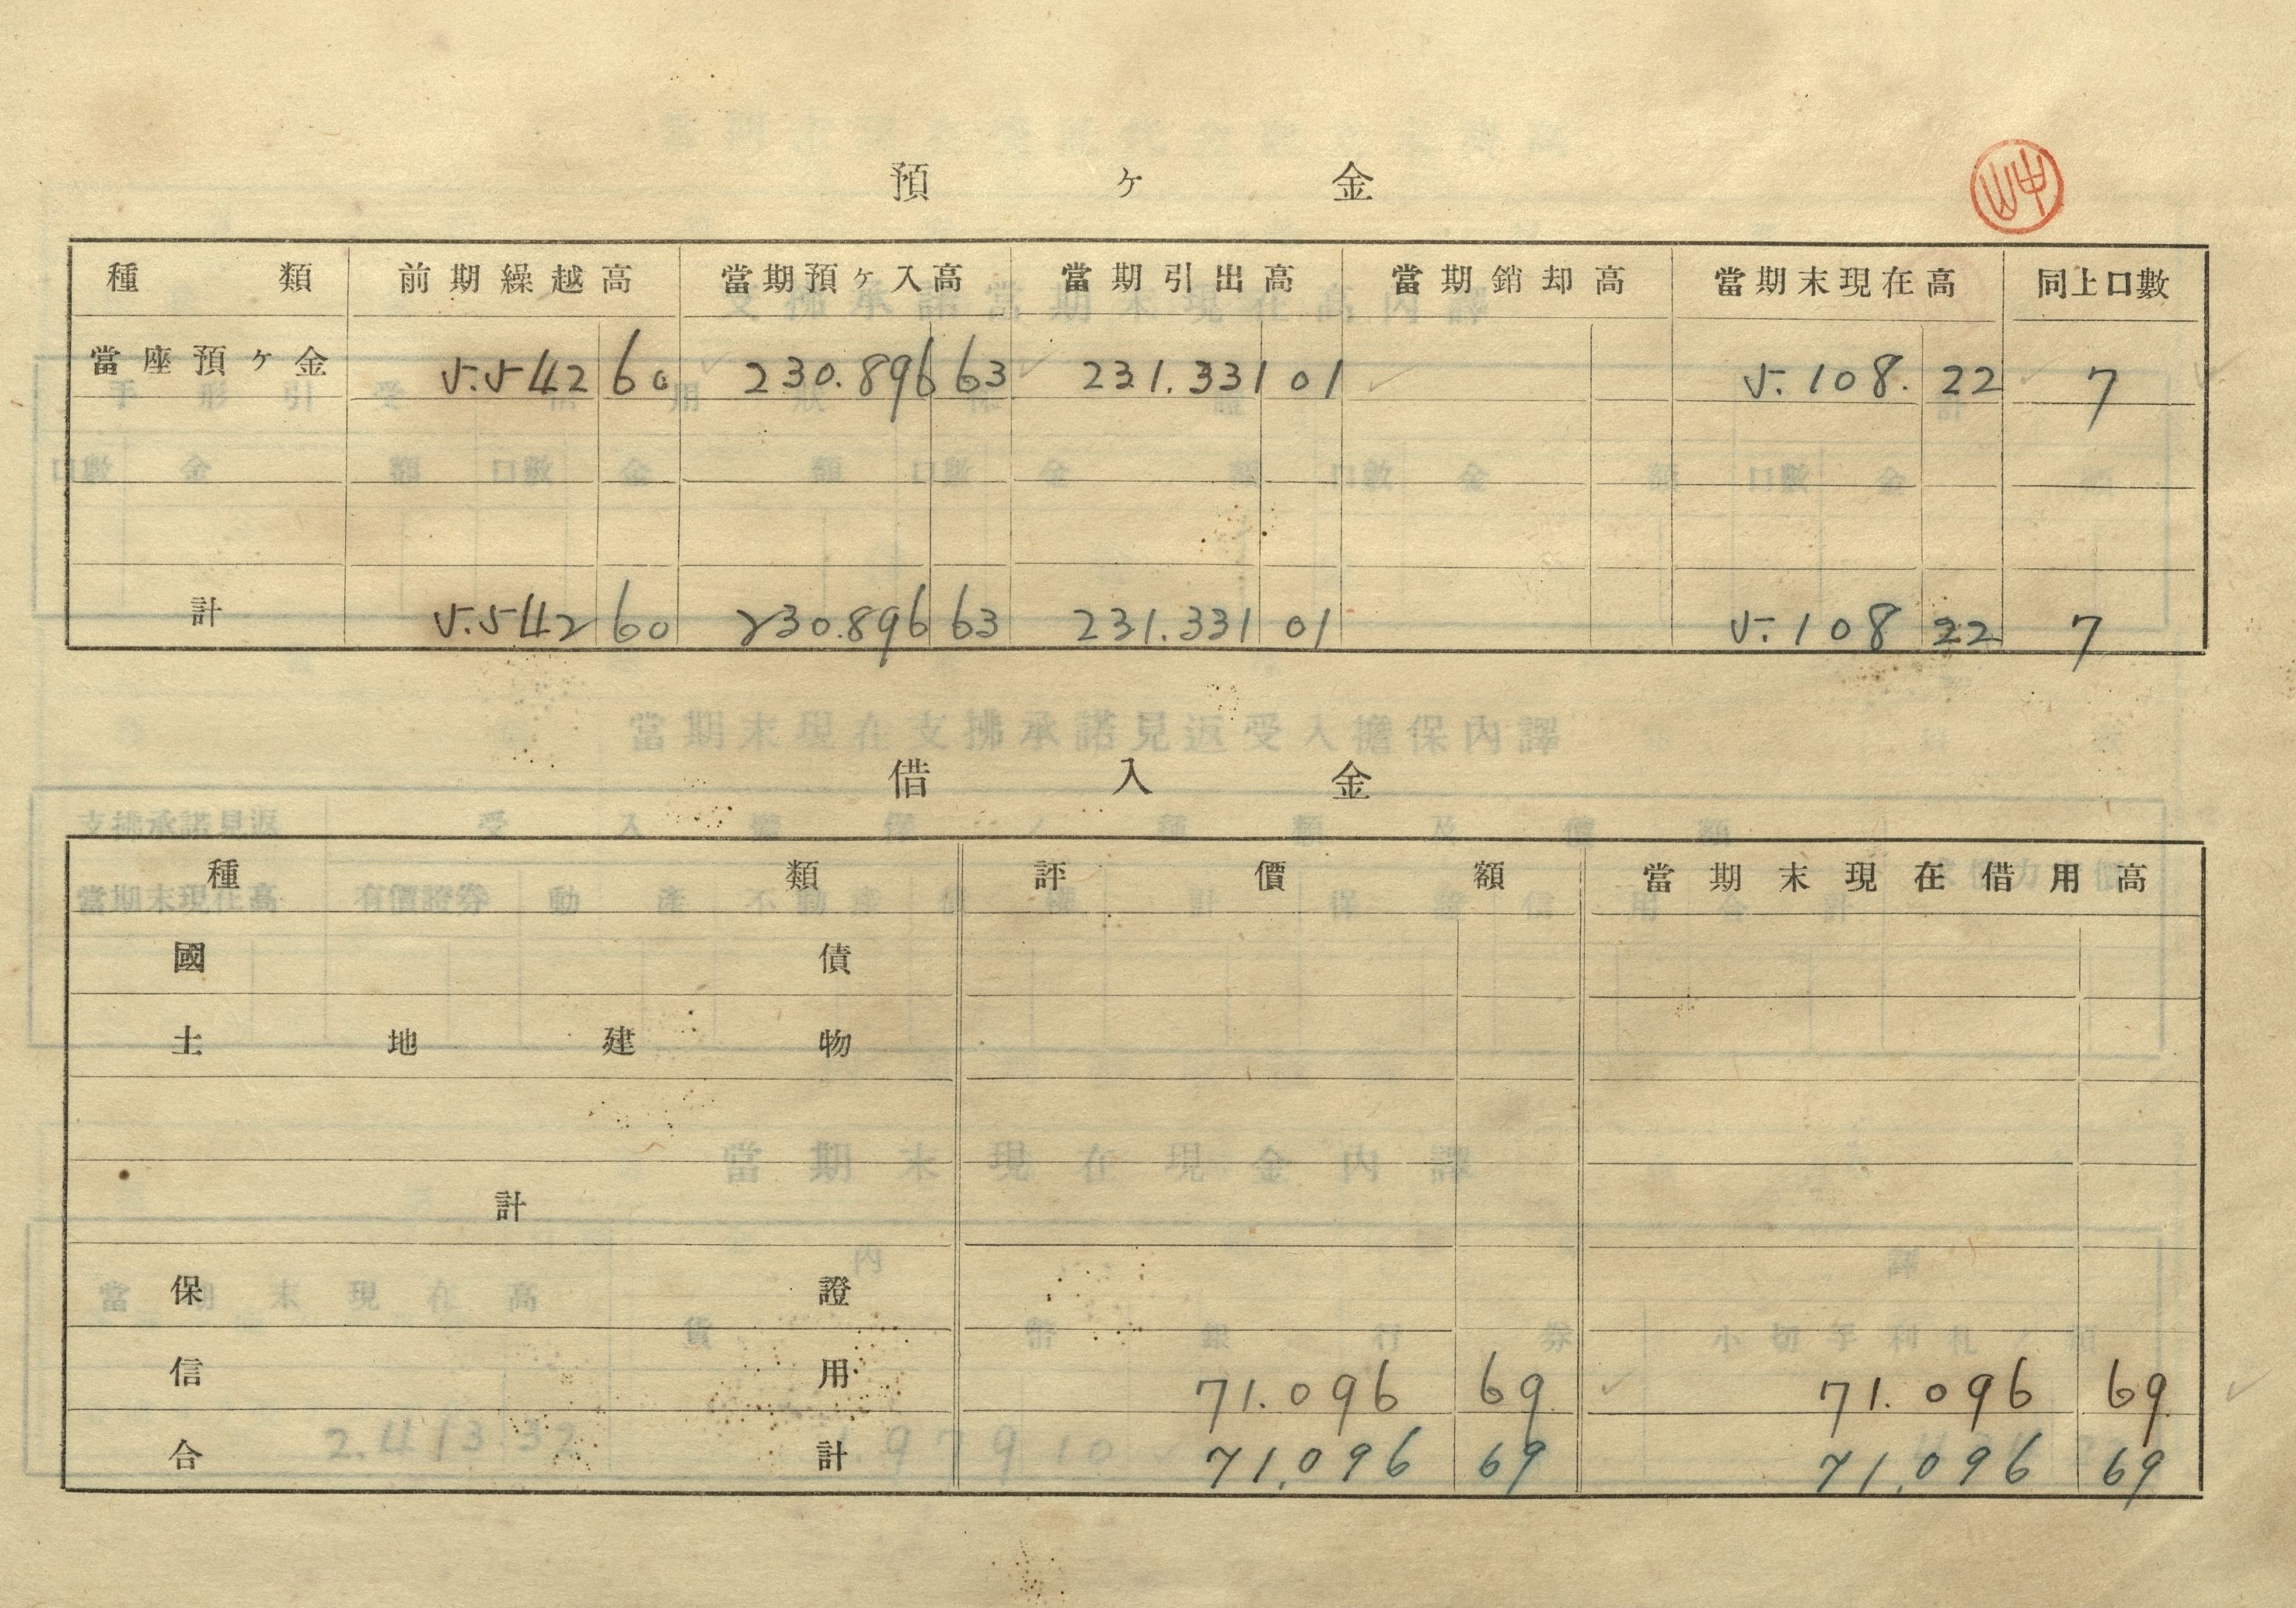 預ヶ金
種類 前期繰越高 當期預ヶ入高 當期引出高 當期銷却高 當期末現在高 同上口數
當座預ヶ金 5.542 60 230.896 63 231.331 01 5.108. 22 7
計 5.542 60 230.896 63 231.331 01 5.108 22 7
借入金
種類 評價額 當期末現在借用高
國債
土地建物
計
保證
信用 71.096 69 71.096 69
合計 71.096 69 71.096 69